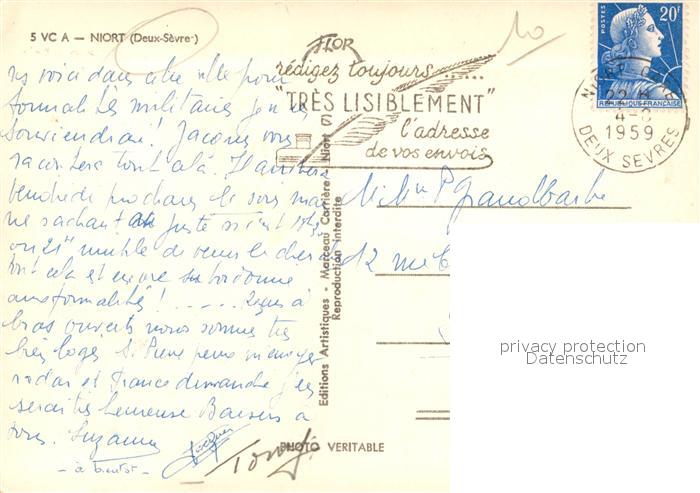 5 VC A — NIORT (Deux-Sèvre-)
10
FLOR
rédigez toujours......
"TRÈS LISIBLEMENT"
l'adresse
de vos envois
POSTES 20F
RÉPUBLIQUE FRANÇAISE
NIORT
4-
1959
DEUX SEVRES
voici dans ville pour
formalités militaires je
souviendrai! Jacques vous
racontera tout cela. Il arrivera
vendredi prochain le soir mais
ne sachant au juste si c'est
ou 21h inutile de venir le chercher
tout cela est encore subordonné
aux formalités! ..... reçus à
bras ouverts nous sommes très
bien logés Si Pierre peut m'envoyer
et France dimanche j'en
serais très heureuse Baisers à
tous. Suzanne
- à bientôt -
Jacques
Editions Artistiques - Marceau Carrière - Niort
Reproduction interdite
12
PHOTO VERITABLE
privacy protection
Datenschutz